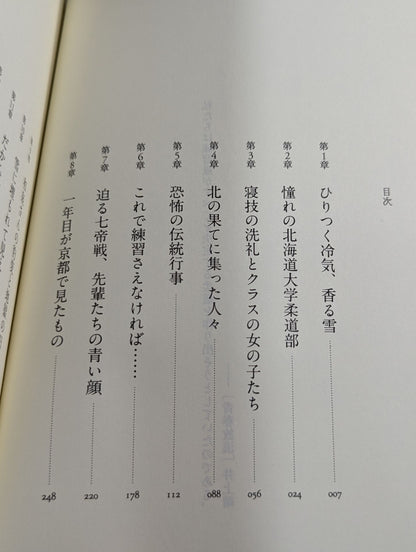 目次
第1章 ひりつく冷気、香る雪 007
第2章 憧れの北海道大学柔道部 024
第3章 寝技の洗礼とクラスの女の子たち 056
第4章 北の果てに集った人々 088
第5章 恐怖の伝統行事 112
第6章 これで練習さえなければ…… 178
第7章 迫る七帝戦、先輩たちの青い顔 220
第8章 一年目が京都で見たもの 248